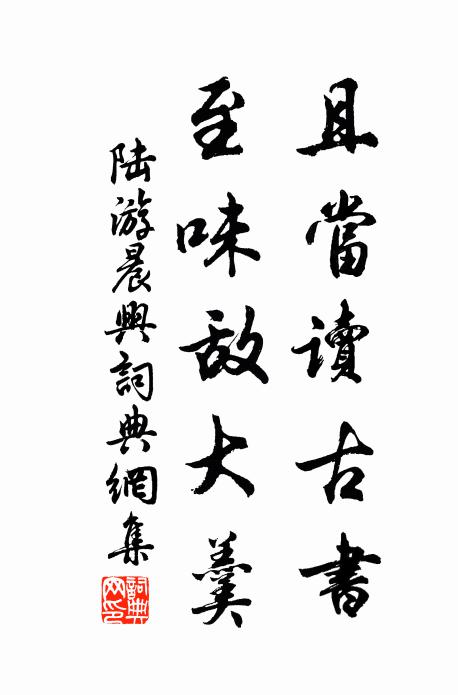 且當讀古書
至味敌大羹
陆游晨興詞典網集
詞典網印